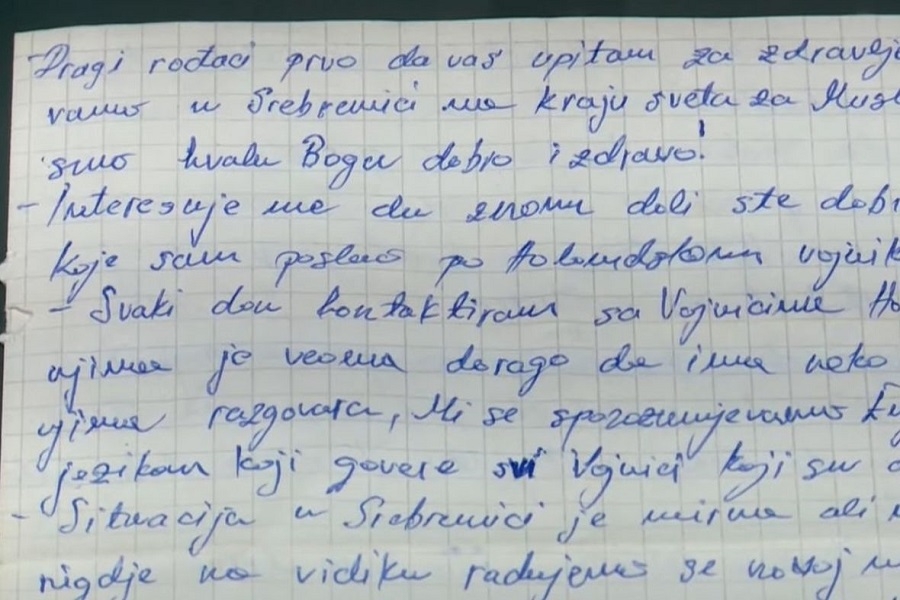 Dragi rođaci prvo da vas upitam za zdravlj
vamo u Srebrenici na kraju sveta za Musl
smo hvala Bogu dobro i zdravo!
- Interesuje me da znam dali ste dobi
koje sam poslao po Holandskom vojnik
- Svaki dan kontaktiram sa Vojnicima Ho
njima je veoma dorago da ima neko
njima razgovara, Mi se sporazumjevamo En
jezikom koji govore svi Vojnici koji su
- Situacija u Srebrenici je mirna ali
nigdje na vidiku radujemo se novoj